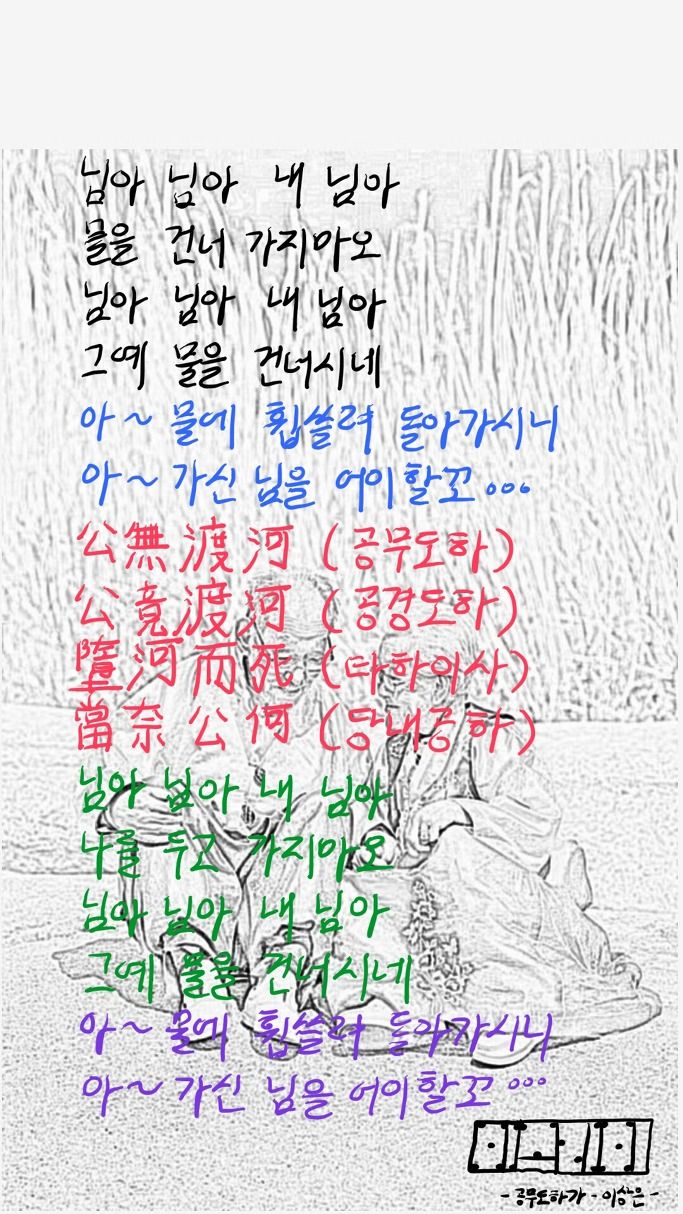 님아 님아 내 님아
물을 건너 가지마오
님아 님아 내 님아
그예 물을 건너시네
아~ 물에 휩쓸려 돌아가시니
아~ 가신 님을 어이할꼬...
公無渡河 (공무도하)
公竟渡河 (공경도하)
墮河而死 (타하이사)
當奈公何 (당내공하)
님아 님아 내 님아
나를 두고 가지마오
님아 님아 내 님아
그예 물을 건너시네
아~ 물에 휩쓸려 돌아가시니
아~ 가신 님을 어이할꼬...
-공무도하가-이상은-